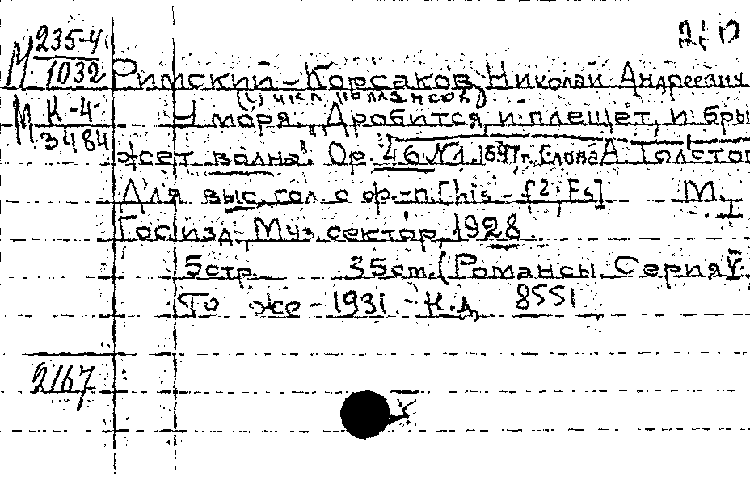 М 235-4
1032
Римский-Корсаков, Николай Андреевич
(Цикл романсов)
М К-4
3484
У моря. „Дробится, и плещет, и бры
жет волна". Op. 46 №1. 1897 г. Слова А. Толстог
Для выс. гол. с ф.-п. [his-f2; Fs] М.
Госизд. Муз. сектор, 1928.
5 стр. 35 cm. (Романсы. Серия V.
То же - 1931 - Н.д. 8551
2167